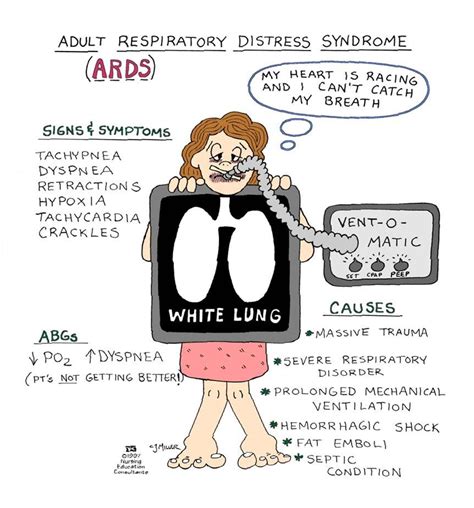 ADULT RESPIRATORY DISTRESS SYNDROME
(ARDS)
MY HEART IS RACING
AND I CAN'T CATCH
MY BREATH
SIGNS & SYMPTOMS
TACHYPNEA
DYSPNEA
RETRACTIONS
HYPOXIA
TACHYCARDIA
CRACKLES
VENT-O-
MATIC
SET CPAP PEEP
WHITE LUNG
ABGs
↓ PO2 ↑DYSPNEA
(PT'S NOT GETTING BETTER!)
CAUSES
*MASSIVE TRAUMA
*SEVERE RESPIRATORY
DISORDER
*PROLONGED MECHANICAL
VENTILATION
*HEMORRHAGIC SHOCK
*FAT EMBOLI
*SEPTIC
CONDITION
©1997
Nursing
Education
Consultants
CJMILLER